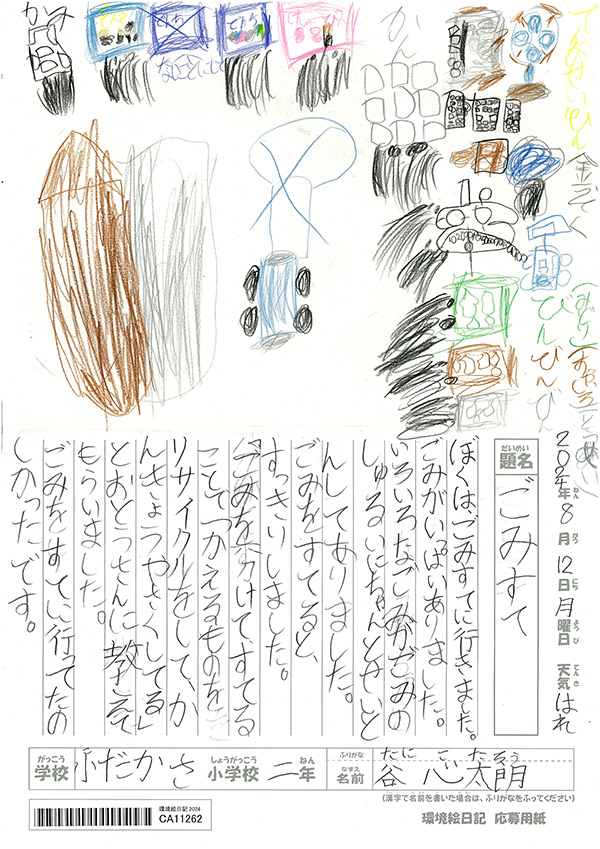 かみ
なにごといじて
かん
金ぞく
びん
びん
びん
2024年8月12日月曜日 天気はれ
ねん がつ にち ようび てんき
だいめい
題名 ごみすて
ぼくはごみすてに行きました。
ごみがいっぱいありました。
いろいろなごみがごみの
しゅるいにちゃんとせいと
んしてありました。
ごみをすてると、
すっきりしました。
「ごみを分けてすてる
ことでつかえるものを
リサイクルをして、か
んきょうやさしくしてる」
とおとうさんに教えて
もらいました。
ごみをすてに行ってたの
しかったです。
がっこう しょうがっこう ねん ふりがな たに こ たろう
学校 ふだかさ 小学校 二年 なまえ 名前 谷 心太朗
(漢字で名前を書いた場合は、ふりがなをふってください)
環境絵日記 2024
CA11262
環境絵日記 応募用紙